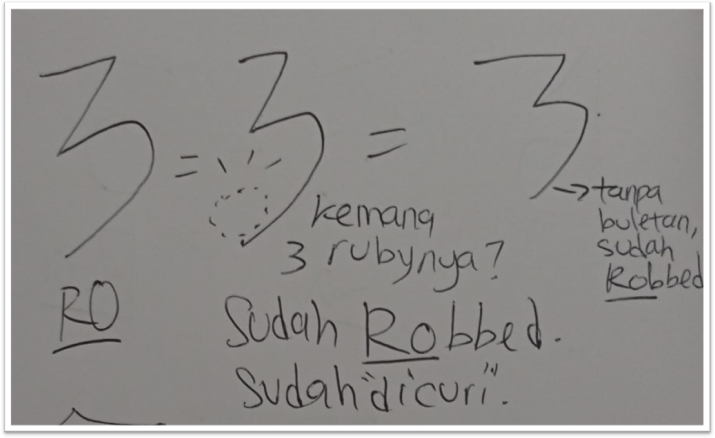 3 = 3 = 3
kemana
3 rubynya?
→ tanpa
buletan,
sudah
Robbed
RO
Sudah Robbed.
Sudah "dicuri".